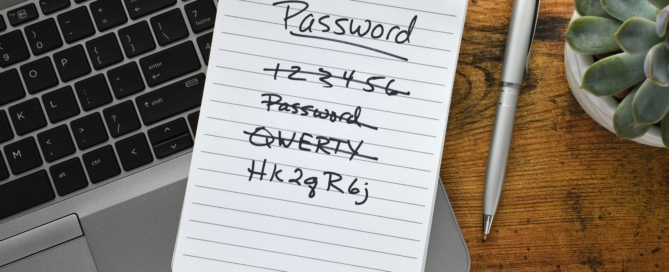 Password
123456
Password
QWERTY
Hk2qR6j